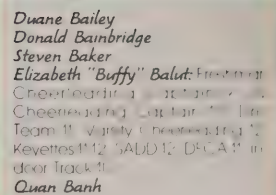 Duane Bailey
Donald Bainbridge
Steven Baker
Elizabeth "Buffy" Balut: Freshman
Cheerleading
Cheerleading
Team 11, Varsity Cheerleading
Keyettes 11 12, SADD 12, DECA 11, In
door Track 11
Quan Banh